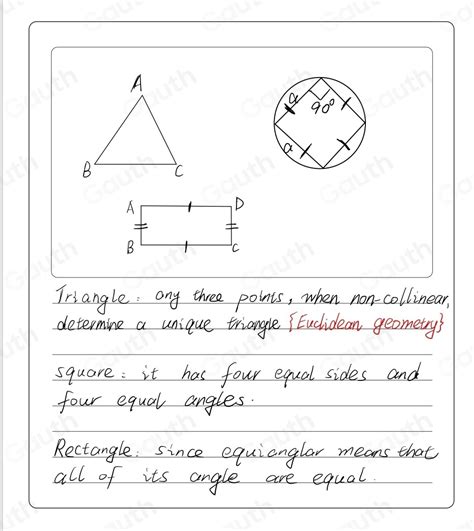 A
B
C
a
90°
a
A
D
B
C
Triangle: any three points, when non-collinear,
determine a unique triangle {Euclidean geometry}
square: it has four equal sides and
four equal angles.
Rectangle: since equianglar means that
all of its angle are equal.
Gauth